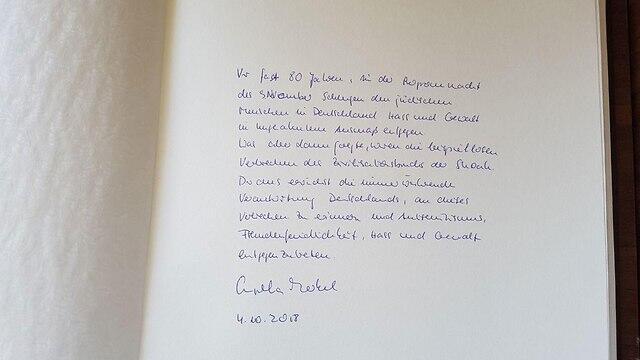 Vor fast 80 Jahren, in der Pogromnacht
des 9. November schlugen den jüdischen
Menschen in Deutschland Hass und Gewalt
in ungeahntem Ausmaß entgegen
Was aber dann folgte, waren die beispiellosen
Verbrechen des Zivilisationsbruchs der Shoah.
Daraus erwächst die immerwährende
Verantwortung Deutschlands, an dieses
Verbrechen zu erinnern und Antisemitismus,
Fremdenfeindlichkeit, Hass und Gewalt
entgegenzutreten.
Angela Merkel
4.10.2018